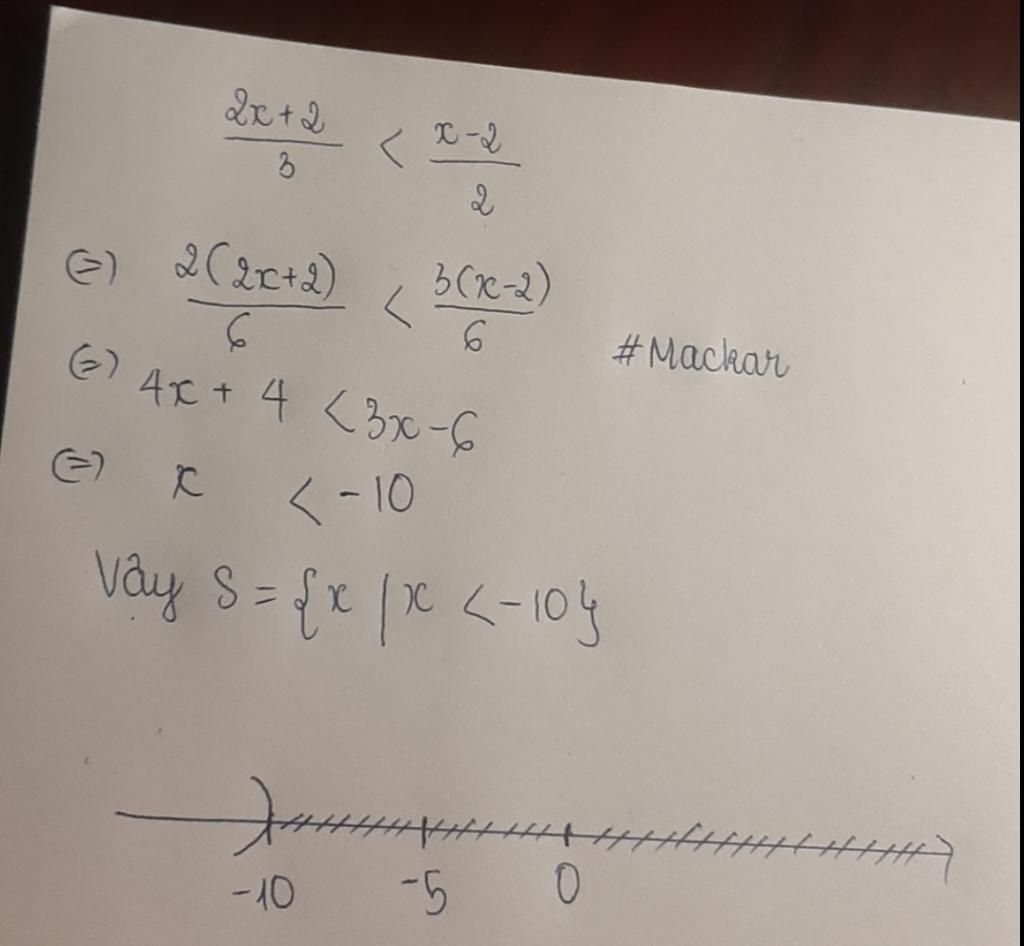 2x+2 / 3 < x-2 / 2
(=) 2(2x+2) / 6 < 3(x-2) / 6
#Mackar
(=) 4x + 4 < 3x-6
(=) x < -10
Vậy S = {x / x < -10}
-10 -5 0